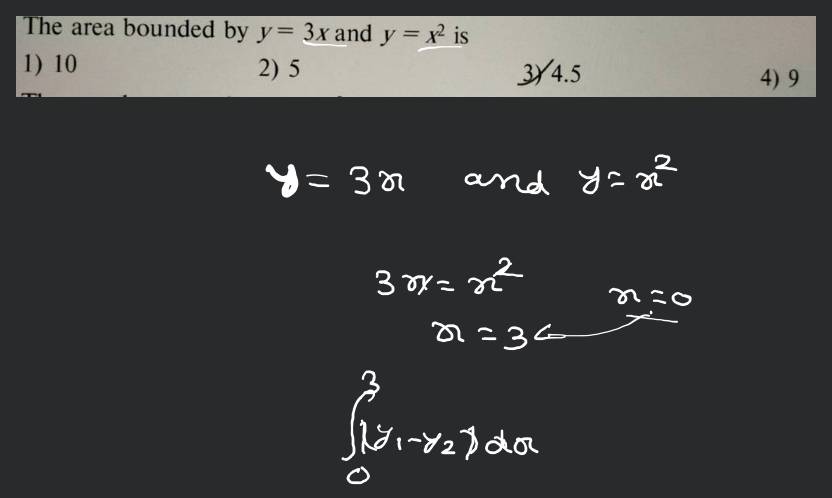 The area bounded by y = 3x and y = x² is
1) 10 2) 5 3) 4.5 4) 9
y = 3x and y = x²
3x = x²
x = 0
x = 3
∫₀³ (y₁ - y₂) dx